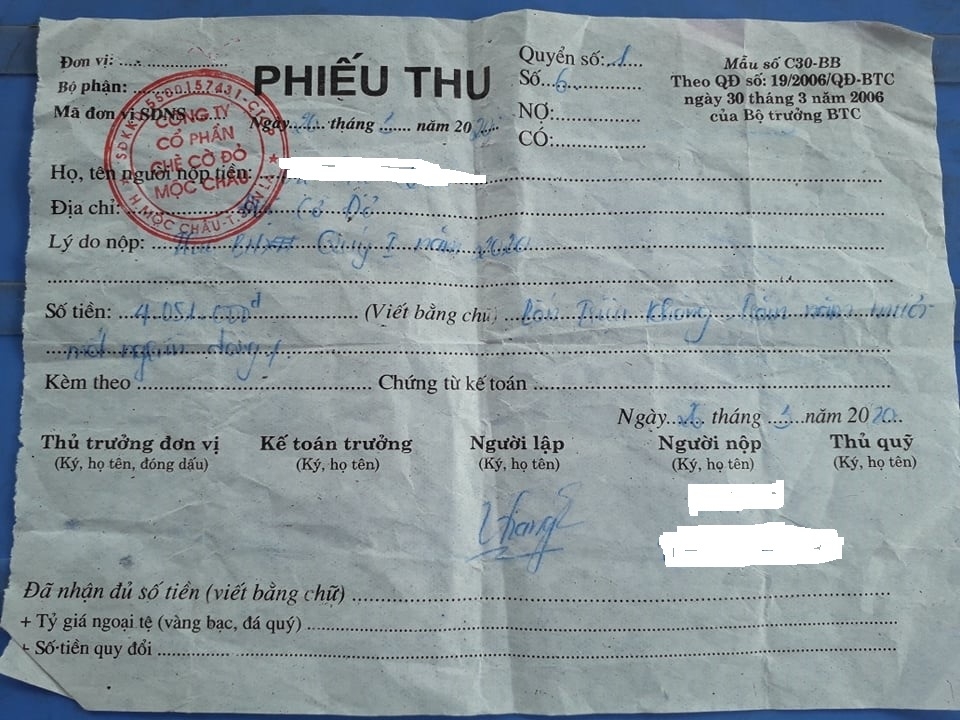 Đơn vị: ..........................
Bộ phận: ....................
Mã đơn vị SDNS ........
PHIẾU THU
Ngày............ tháng ........... năm 20.......
Quyển số: 1
Số: 6
NỢ: ........................
CÓ: ........................
Mẫu số C30-BB
Theo QĐ số: 19/2006/QĐ-BTC
ngày 30 tháng 3 năm 2006
của Bộ trưởng BTC
CÔNG TY
CỔ PHẦN
CHÈ CỜ ĐỎ
MỘC CHÂU
H.MỘC CHÂU-T.SƠN LA
Họ, tên người nộp tiền: ...
Địa chỉ: Cờ Đỏ
Lý do nộp: Thu Quý I năm 2020
Số tiền: 4.051.000đ (Viết bằng chữ) Bốn Triệu Không Trăm năm mươi
mốt nghìn đồng
Kèm theo .................... Chứng từ kế toán ....................
Ngày........ tháng ........ năm 2020
Thủ trưởng đơn vị Kế toán trưởng Người lập Người nộp Thủ quỹ
(Ký, họ tên, đóng dấu) (Ký, họ tên) (Ký, họ tên) (Ký, họ tên) (Ký, họ tên)
Đã nhận đủ số tiền (viết bằng chữ) ....................
+ Tỷ giá ngoại tệ (vàng bạc, đá quý) ....................
+ Số tiền quy đổi ....................